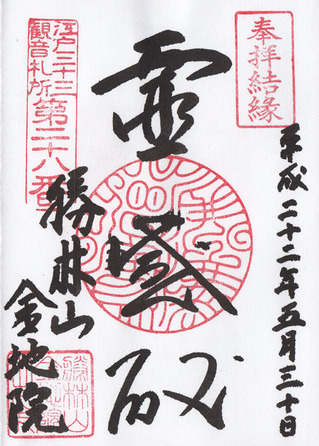 奉拝結縁
平成二十二年五月三十日
靈感殿
江戸三十三
観音札所
第二十八番
勝林山
金地院